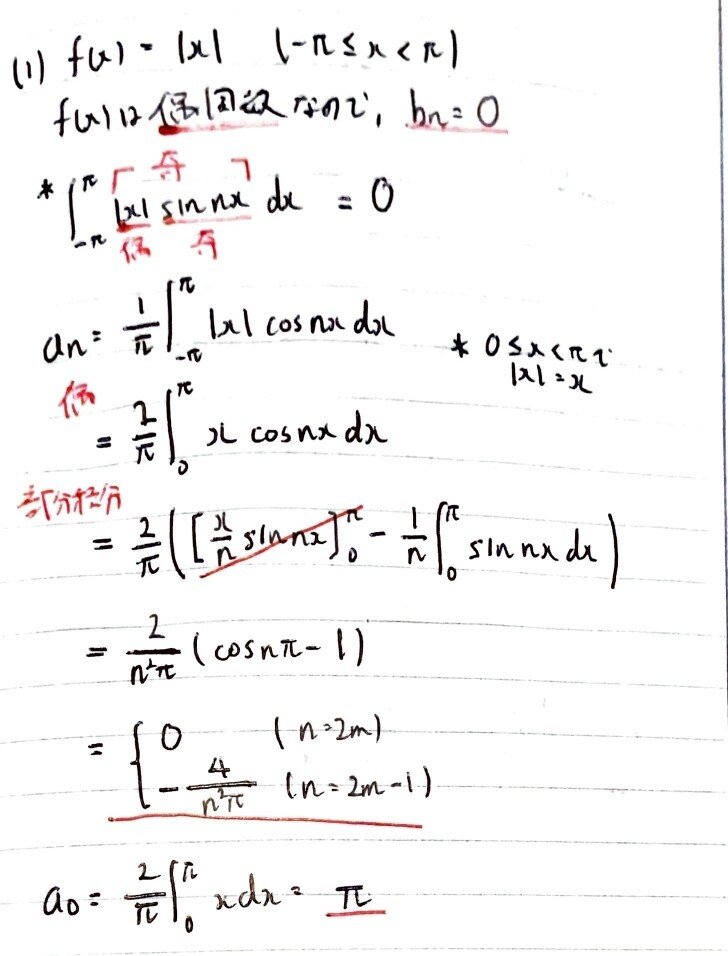 (1) f(x) = |x| (-π ≤ x < π)
f(x)は偶関数なので, bn = 0
「 奇 」
* ∫_{-π}^{π} |x| sin nx dx = 0
偶 奇
an = 1/π ∫_{-π}^{π} |x| cos nx dx
* 0 ≤ x < πで
|x| = x
偶
= 2/π ∫_{0}^{π} x cos nx dx
部分積分
= 2/π ( [x/n sin nx]_{0}^{π} - 1/n ∫_{0}^{π} sin nx dx )
= 2/(n²π) (cos nπ - 1)
= { 0 (n = 2m)
- 4/(n²π) (n = 2m-1)
a0 = 2/π ∫_{0}^{π} x dx = π